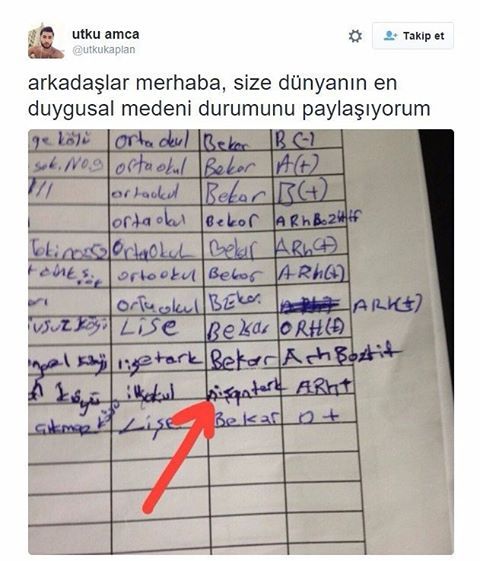 utku amca
@utkukaplan
Takip et
arkadaşlar merhaba, size dünyanın en
duygusal medeni durumunu paylaşıyorum
ge köyü ortaokul Bekar B(-)
sok. No9 ortaokul Bekar A(+)
ortaokul Bekar B(+)
ortaokul Bekor ARhBozitif
OrtaOkul Bekar ARh(+)
ortaokul Bekor ARh(+)
ortaokul BEkar ARh(+)
köyü LiSE Bekar ORH(+)
köyü lisetark Bekar ArhBozitif
köyü ilkokul nişantark ARh+
Lise Bekar 0+